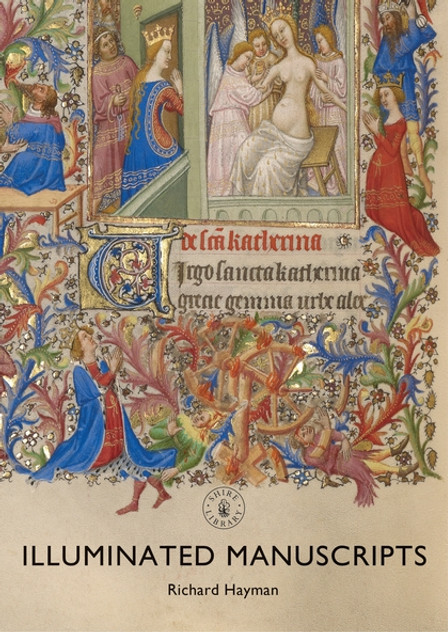 de sc̃a katherina
Virgo sancta katherina
grecie gemma urbe alex
SHIRE LIBRARY
ILLUMINATED MANUSCRIPTS
Richard Hayman